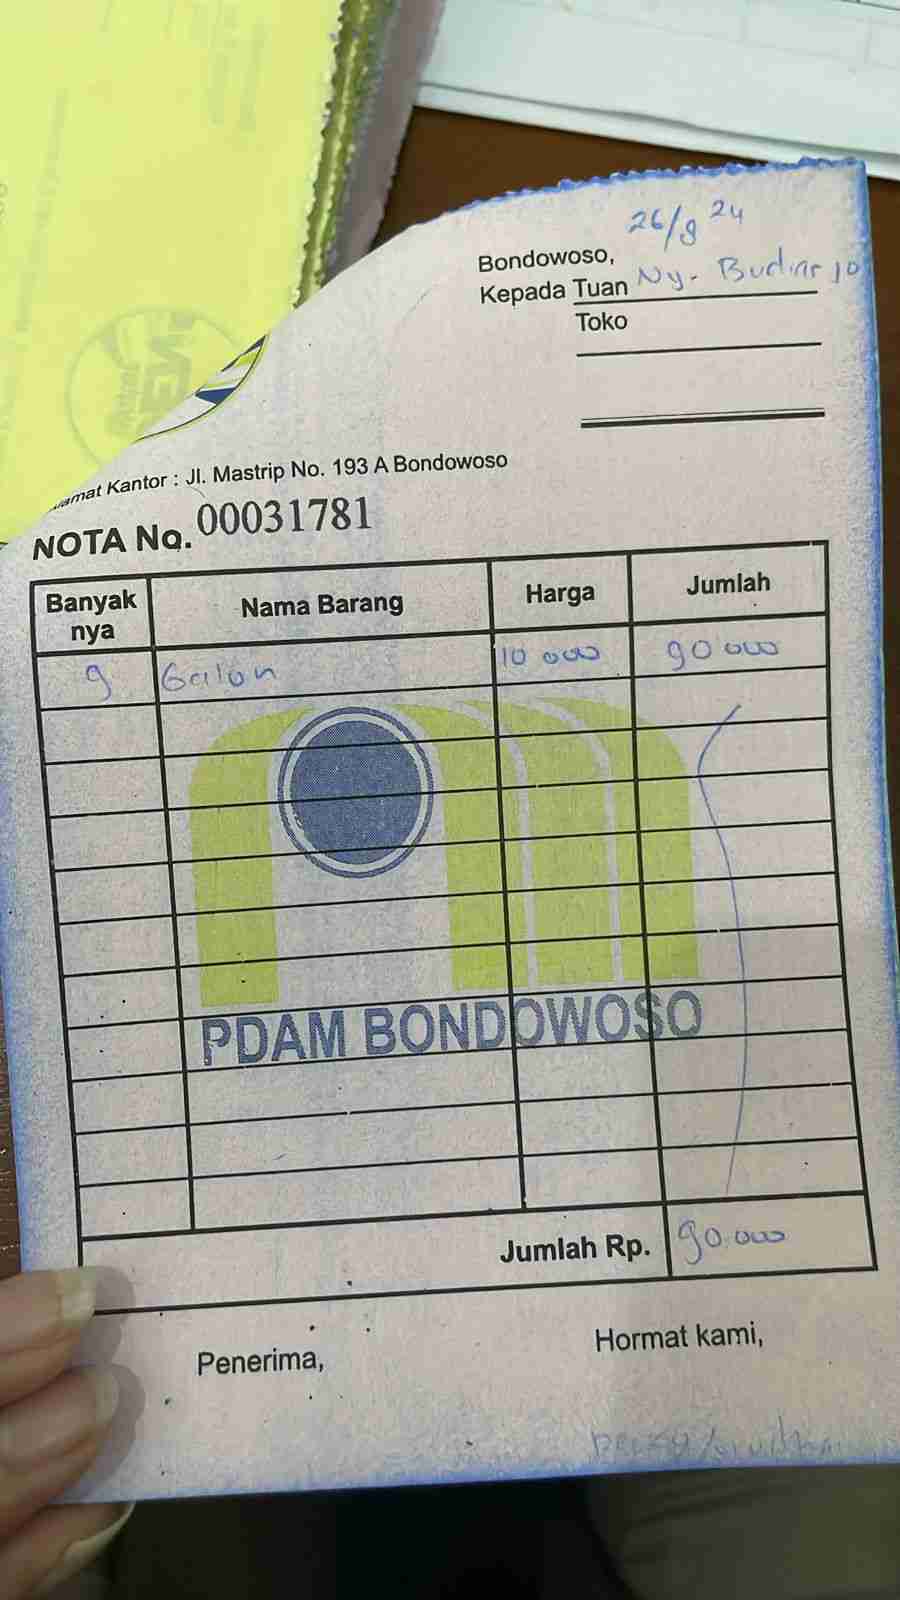 Bondowoso, 26/9 24
Kepada Tuan Ny. Budiarjo
Toko
Alamat Kantor : Jl. Mastrip No. 193 A Bondowoso
NOTA No. 00031781
Banyak nya Nama Barang Harga Jumlah
9 Galon 10 000 90 000
PDAM BONDOWOSO
Jumlah Rp. 90.000
Penerima, Hormat kami,